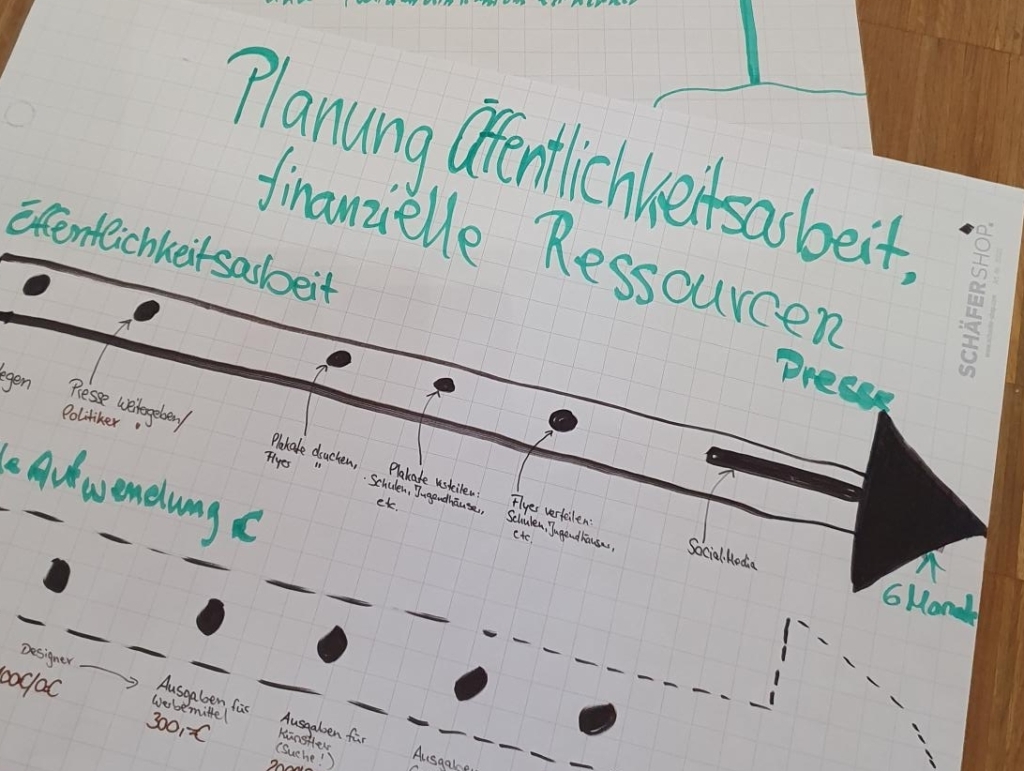 Planung Öffentlichkeitsarbeit,
finanzielle Ressourcen
Öffentlichkeitsarbeit
Presse
SCHÄFERSHOP
Presse weitergeben/
Politiker
Plakate drucken,
Flyer "
Plakate verteilen:
Schulen, Jugendhäuser,
etc.
Flyer verteilen:
Schulen, Jugendhäuser,
etc.
Social-Media
6 Monate
Aufwendung €
Designer
Ausgaben für
Werbemittel
300,-€
Ausgaben für
Künstler
(Suche!)
Ausgaben